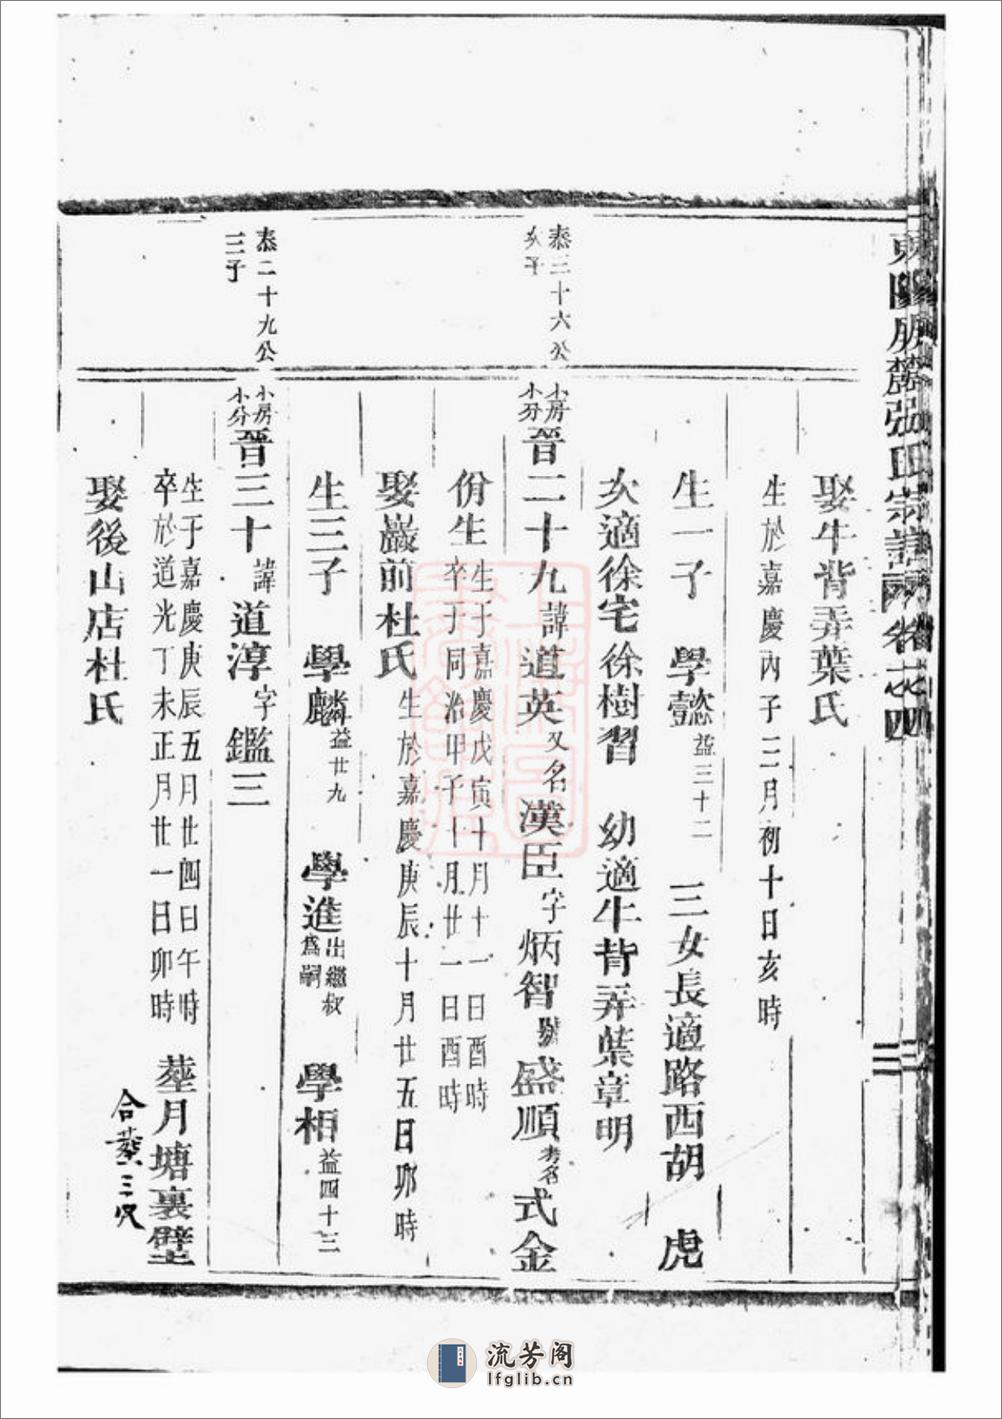 東陽屏麓張氏宗譜 卷之四
娶牛背弄葉氏
生於嘉慶丙子三月初十日亥時
生一子 學懿益三十二 三女長適路西胡 虎
次適徐宅徐樹習 幼適牛背弄葉章明
泰三十六公
次子
小房
小分
晉二十九諱道英又名漢臣字炳智號盛順考名式金
份生
生于嘉慶戊寅十月十一日酉時
卒于同治甲子十月廿一日酉時
娶巖前杜氏生於嘉慶庚辰十月廿五日卯時
生三子 學麟益廿九 學進出繼叔為嗣 學相益四十三
泰二十九公
三子
小房
小分
晉三十諱道淳字鑑三
生于嘉慶庚辰五月廿四日午時
卒於道光丁未正月廿一日卯時
塟月塘裏壁
娶後山店杜氏
合葬三穴
流芳阁
lfglib.cn